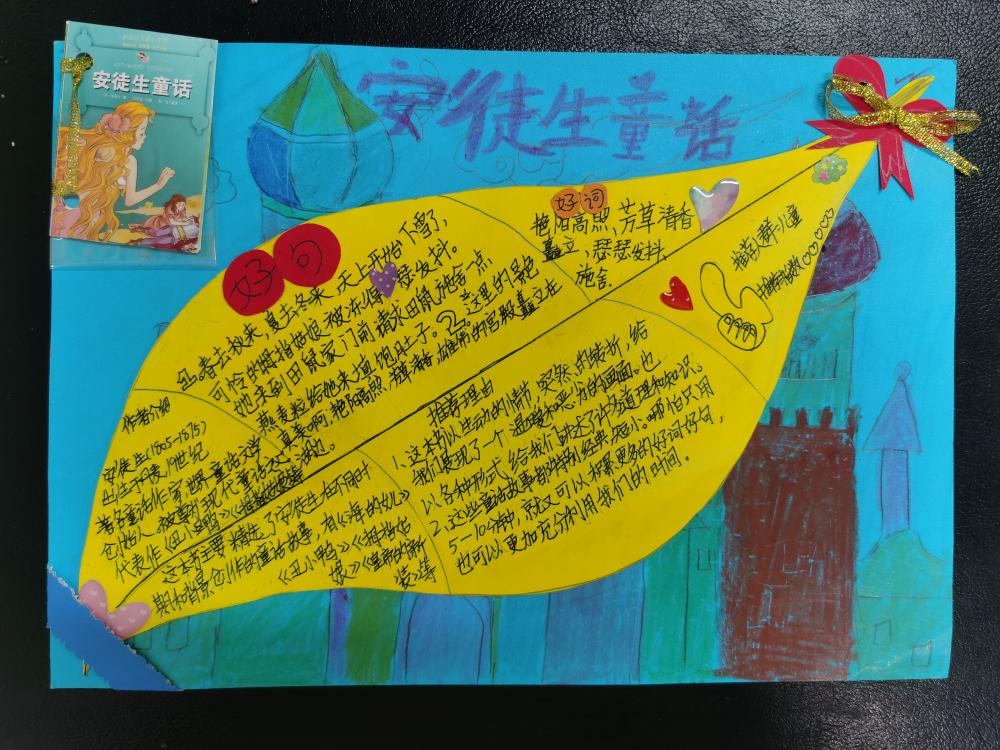 安徒生童话
安徒生童话
好词
艳阳高照,芳草清香
矗立,瑟瑟发抖,
施舍.
推荐人群:儿童
推荐指数:♡♡♡♡♡♡
好句
1.春去秋来,夏去冬来,天上开始下雪,
可怜的拇指姑娘被冻得瑟瑟发抖。
她来到田鼠家门前请求田鼠施舍一点
燕麦粒给她来填饱肚子。2.这里的景色
真美啊,艳阳高照,芳草清香,雄伟的宫殿矗立在
湖边。
推荐理由
1.这本书以生动的情节,突然的转折,给
我们展现了一个温暖和恶,分的画面。也
以各种形式给我们讲述了许多道理和知识。
2.这些童话故事都特别经典,短小。哪怕只用
5—10分钟,就又可以积累更多的好词好句,
也可以更加充分利用我们的时间。
作者介绍
安徒生(1805-1875)
出生于丹麦,19世纪
著名童话作家,世界童话文学
创始人,被尊称现代童话之父。
代表作《丑小鸭》《拇指姑娘》
这本书主要精选了安徒生在不同时
期和背景创作的童话故事,有《海的女儿》
《丑小鸭》《拇指姑
娘》《皇帝的新
装》等